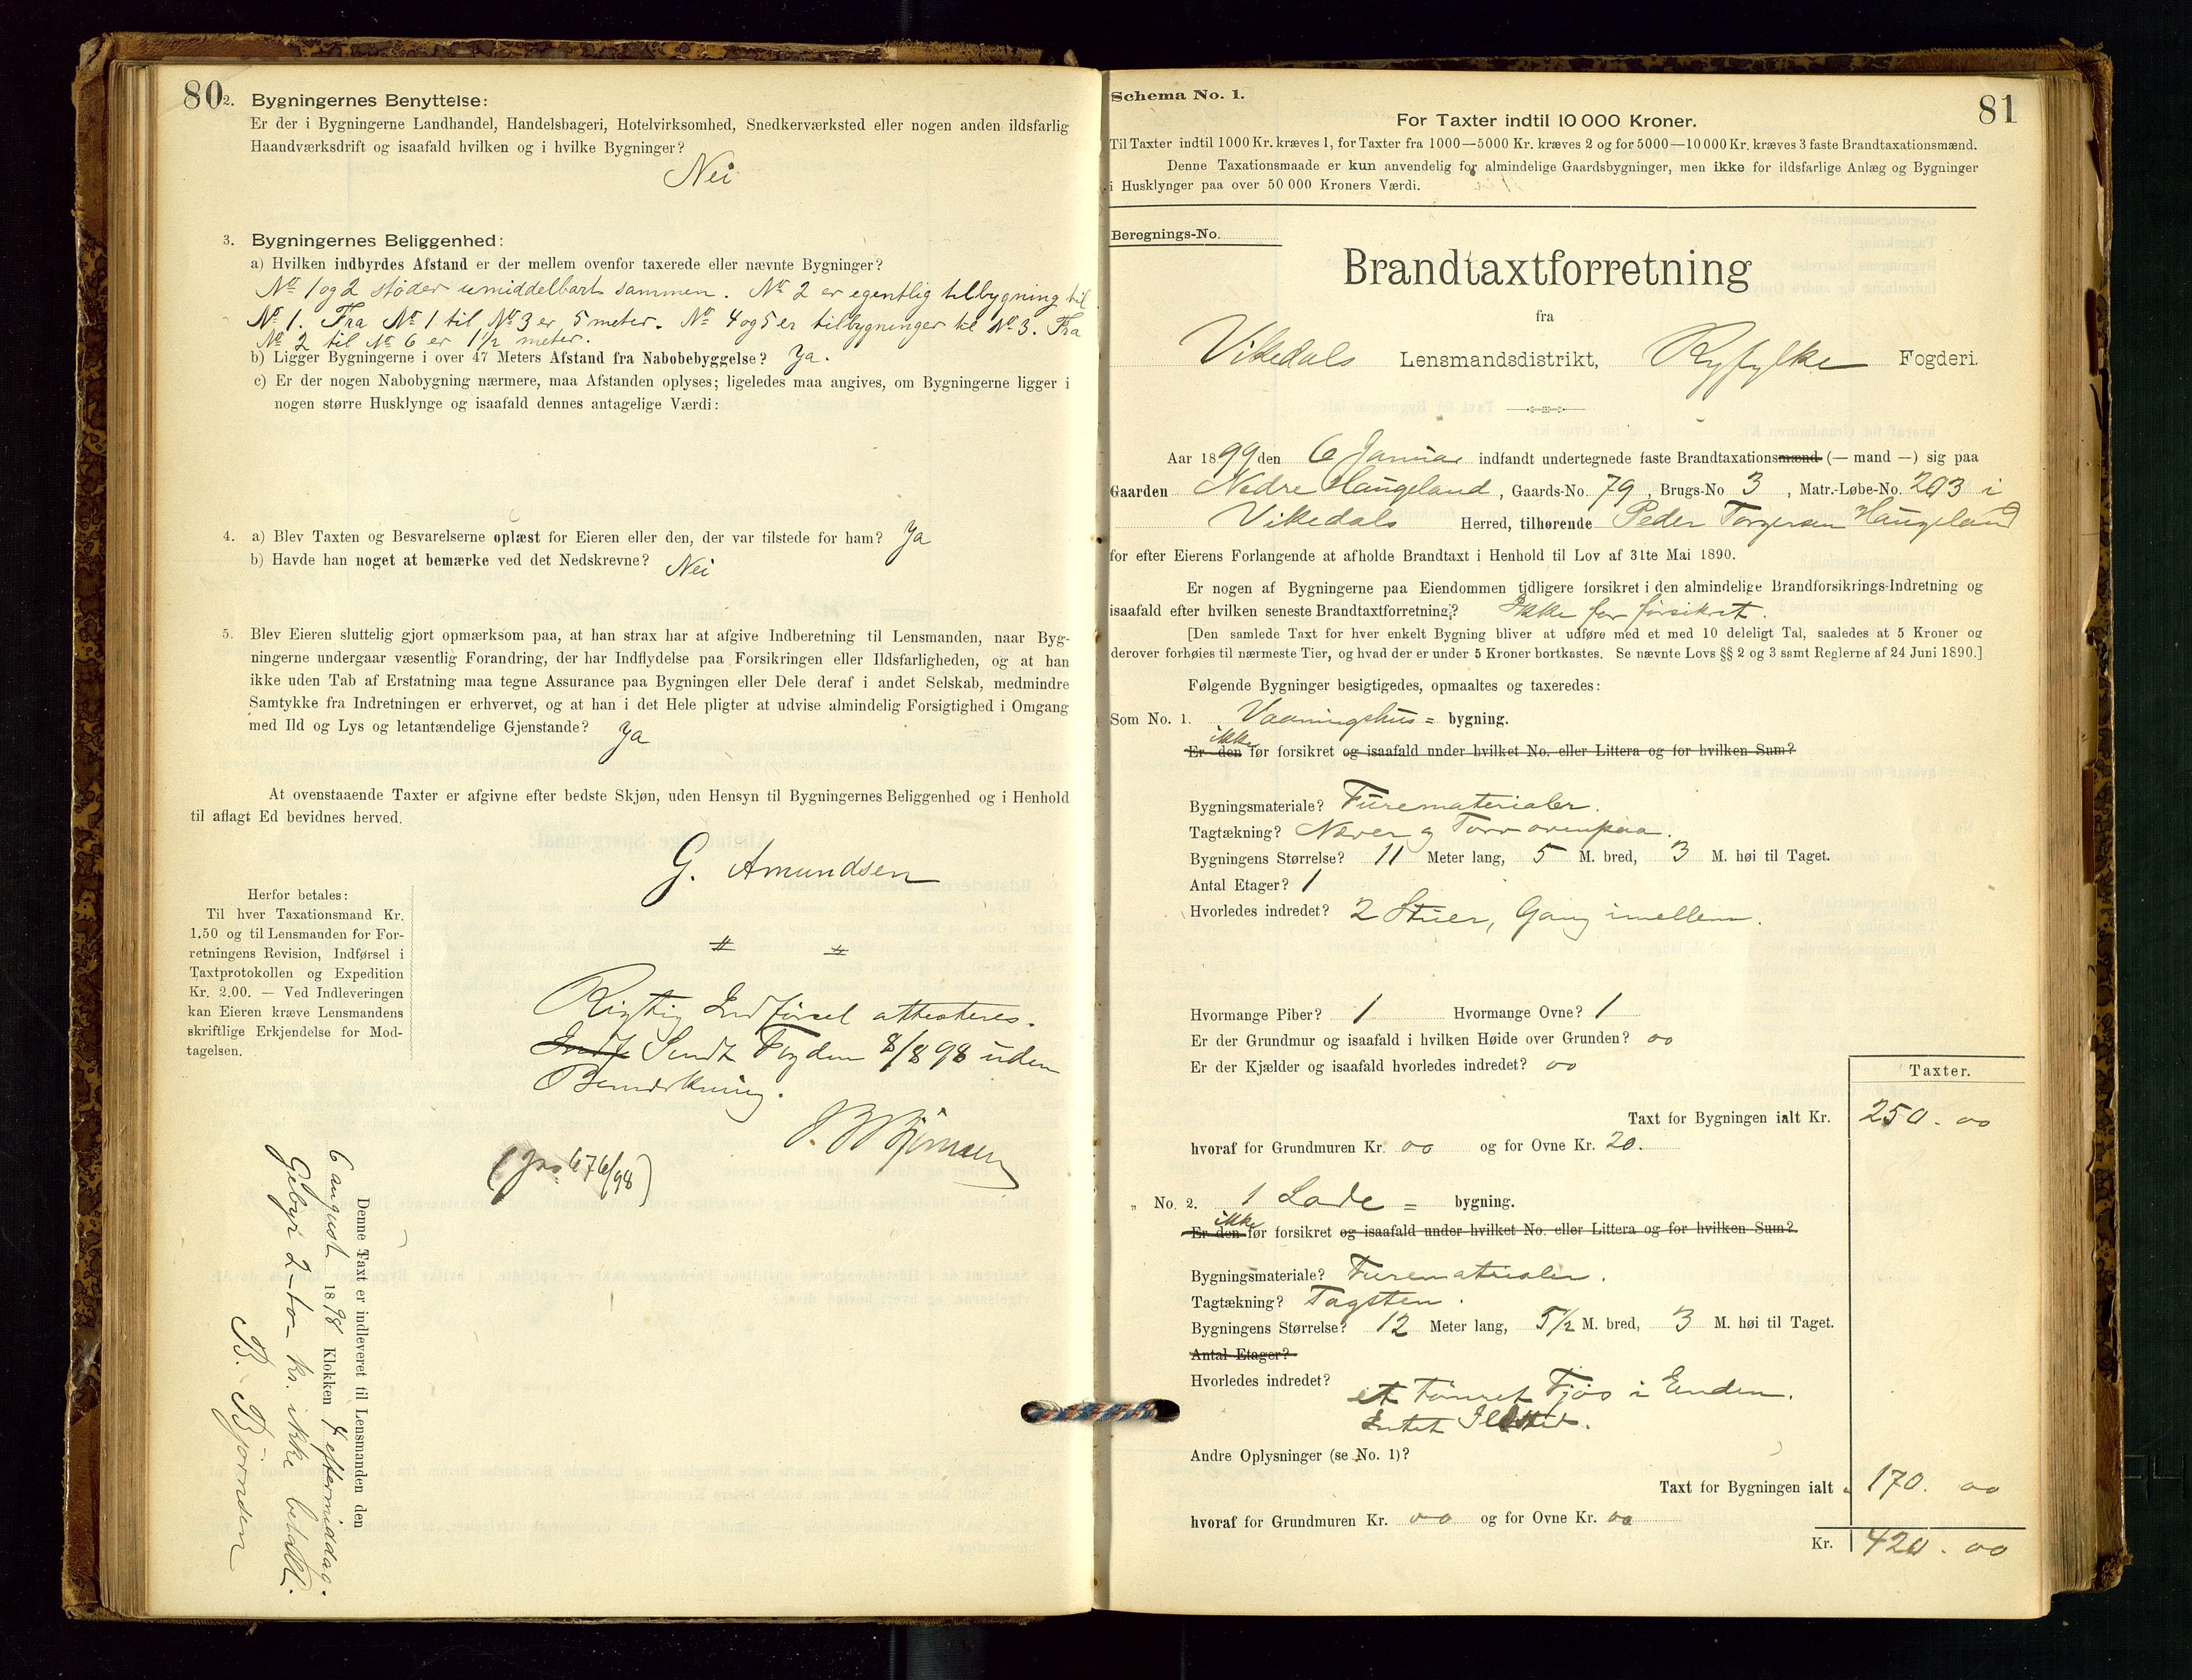 80
2. Bygningernes Benyttelse:
Er der i Bygningerne Landhandel, Handelsbageri, Hotelvirksomhed, Snedkerværksted eller nogen anden ildsfarlig
Haandværksdrift og isaafald hvilken og i hvilke Bygninger?
Nei
3. Bygningernes Beliggenhed:
a) Hvilken indbyrdes Afstand er der mellem ovenfor taxerede eller nævnte Bygninger?
No 1 og 2 støder umiddelbart sammen. No 2 er egentlig tilbygning til
No 1. Fra No 1 til No 3 er 5 meter. No 4 og 5 er tilbygninger til No 3. Fra
No 2 til No 6 er 1 1/2 meter.
b) Ligger Bygningerne i over 47 Meters Afstand fra Nabobebyggelse? Ja.
c) Er der nogen Nabobygning nærmere, maa Afstanden oplyses; ligeledes maa angives, om Bygningerne ligger i
nogen større Husklynge og isaafald dennes antagelige Værdi:
4. a) Blev Taxten og Besvarelserne oplæst for Eieren eller den, der var tilstede for ham? Ja
b) Havde han noget at bemærke ved det Nedskrevne? Nei
5. Blev Eieren sluttelig gjort opmærksom paa, at han strax har at afgive Indberetning til Lensmanden, naar Byg-
ningerne undergaar væsentlig Forandring, der har Indflydelse paa Forsikringen eller Ildsfarligheden, og at han
ikke uden Tab af Erstatning maa tegne Assurance paa Bygningen eller Dele deraf i andet Selskab, medmindre
Samtykke fra Indretningen er erhvervet, og at han i det Hele pligter at udvise almindelig Forsigtighed i Omgang
med Ild og Lys og letantændelige Gjenstande? Ja
At ovenstaaende Taxter er afgivne efter bedste Skjøn, uden Hensyn til Bygningernes Beliggenhed og i Henhold
til aflagt Ed bevidnes herved.
G. Amundsen
Herfor betales:
Til hver Taxationsmand Kr.
1.50 og til Lensmanden for For-
retningens Revision, Indførsel i
Taxtprotokollen og Expedition
Kr. 2.00. — Ved Indleveringen
kan Eieren kræve Lensmandens
skriftlige Erkjendelse for Mod-
tagelsen.
Rigtig Indførsel attesteres.
Indf Sendt Fogden 8/8 98 uden
Bemærkning.
(Jno 676/98)
Denne Taxt er indleveret til Lensmanden den
6 august 1898 Klokken 4 eftermiddag.
Gebyr 2 – to – kr. ikke betalt.
B. Bjørnsen
81
Schema No. 1.
For Taxter indtil 10 000 Kroner.
Til Taxter indtil 1000 Kr. kræves 1, for Taxter fra 1000—5000 Kr. kræves 2 og for 5000—10 000 Kr. kræves 3 faste Brandtaxationsmænd.
Denne Taxationsmaade er kun anvendelig for almindelige Gaardsbygninger, men ikke for ildsfarlige Anlæg og Bygninger
i Husklynger paa over 50 000 Kroners Værdi.
Beregnings-No.
Brandtaxtforretning
fra
Vikedals Lensmandsdistrikt, Ryfylke Fogderi.
Aar 1899 den 6 Januar indfandt undertegnede faste Brandtaxationsmænd (— mand —) sig paa
Gaarden Nedre Haugeland, Gaards-No. 79, Brugs-No 3, Matr.-Løbe-No. 203 i
Vikedals Herred, tilhørende Peder Torgersen Haugeland
for efter Eierens Forlangende at afholde Brandtaxt i Henhold til Lov af 31te Mai 1890.
Er nogen af Bygningerne paa Eiendommen tidligere forsikret i den almindelige Brandforsikrings-Indretning og
isaafald efter hvilken seneste Brandtaxtforretning? Ikke før forsikret.
[Den samlede Taxt for hver enkelt Bygning bliver at udføre med et med 10 deleligt Tal, saaledes at 5 Kroner og
derover forhøies til nærmeste Tier, og hvad der er under 5 Kroner bortkastes. Se nævnte Lovs §§ 2 og 3 samt Reglerne af 24 Juni 1890.]
Følgende Bygninger besigtigedes, opmaaltes og taxeredes:
Som No. 1. Vaaningshus = bygning.
ikke
Er den før forsikret og isaafald under hvilket No. eller Littera og for hvilken Sum?
Bygningsmateriale? Furematerialer.
Tagtækning? Næver og Torv ovenpaa.
Bygningens Størrelse? 11 Meter lang, 5 M. bred, 3 M. høi til Taget.
Antal Etager? 1
Hvorledes indredet? 2 Stuer, Gang imellem.
Hvormange Piber? 1 Hvormange Ovne? 1
Er der Grundmur og isaafald i hvilken Høide over Grunden? 00
Er der Kjælder og isaafald hvorledes indredet? 00
Taxter.
Taxt for Bygningen ialt Kr. 250. 00
hvoraf for Grundmuren Kr. 00 og for Ovne Kr. 20.
„ No. 2. 1 Lade = bygning.
ikke
Er den før forsikret og isaafald under hvilket No. eller Littera og for hvilken Sum?
Bygningsmateriale? Furematerialer.
Tagtækning? Tagsten.
Bygningens Størrelse? 12 Meter lang, 5 1/2 M. bred, 3 M. høi til Taget.
Antal Etager?
Hvorledes indredet? et tømret Fjøs i Enden.
Intet Ildsted.
Andre Oplysninger (se No. 1)?
Taxt for Bygningen ialt 170. 00
hvoraf for Grundmuren Kr. 00 og for Ovne Kr. 00
Kr. 420. 00